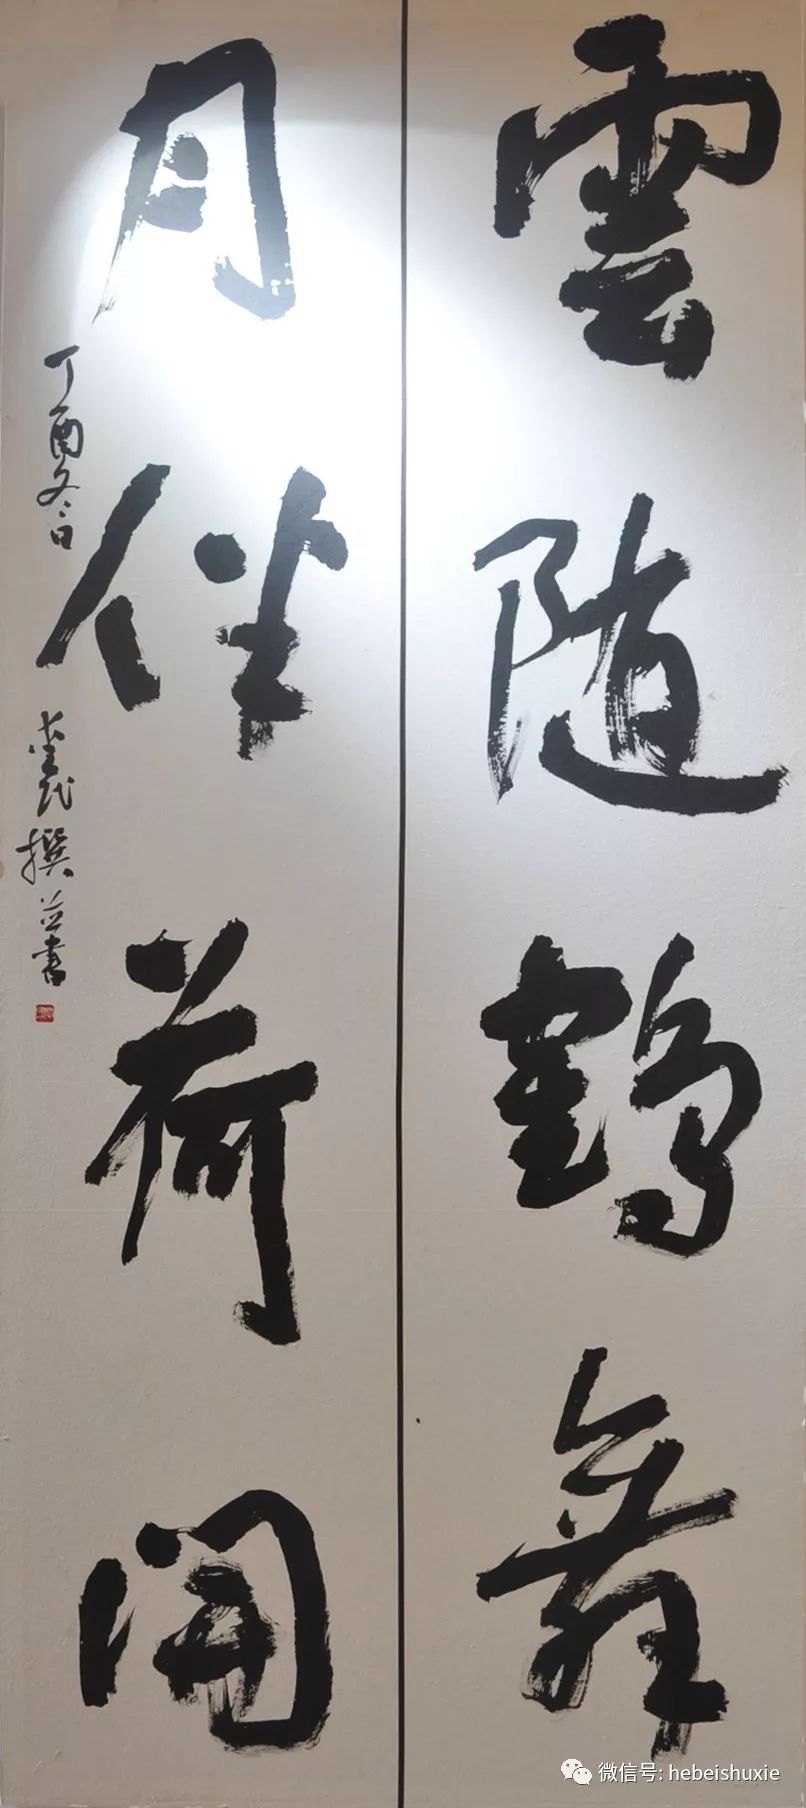 雲随鶴舞
月伴荷開
丁酉冬日
撰並書
微信号: hebeishuxie